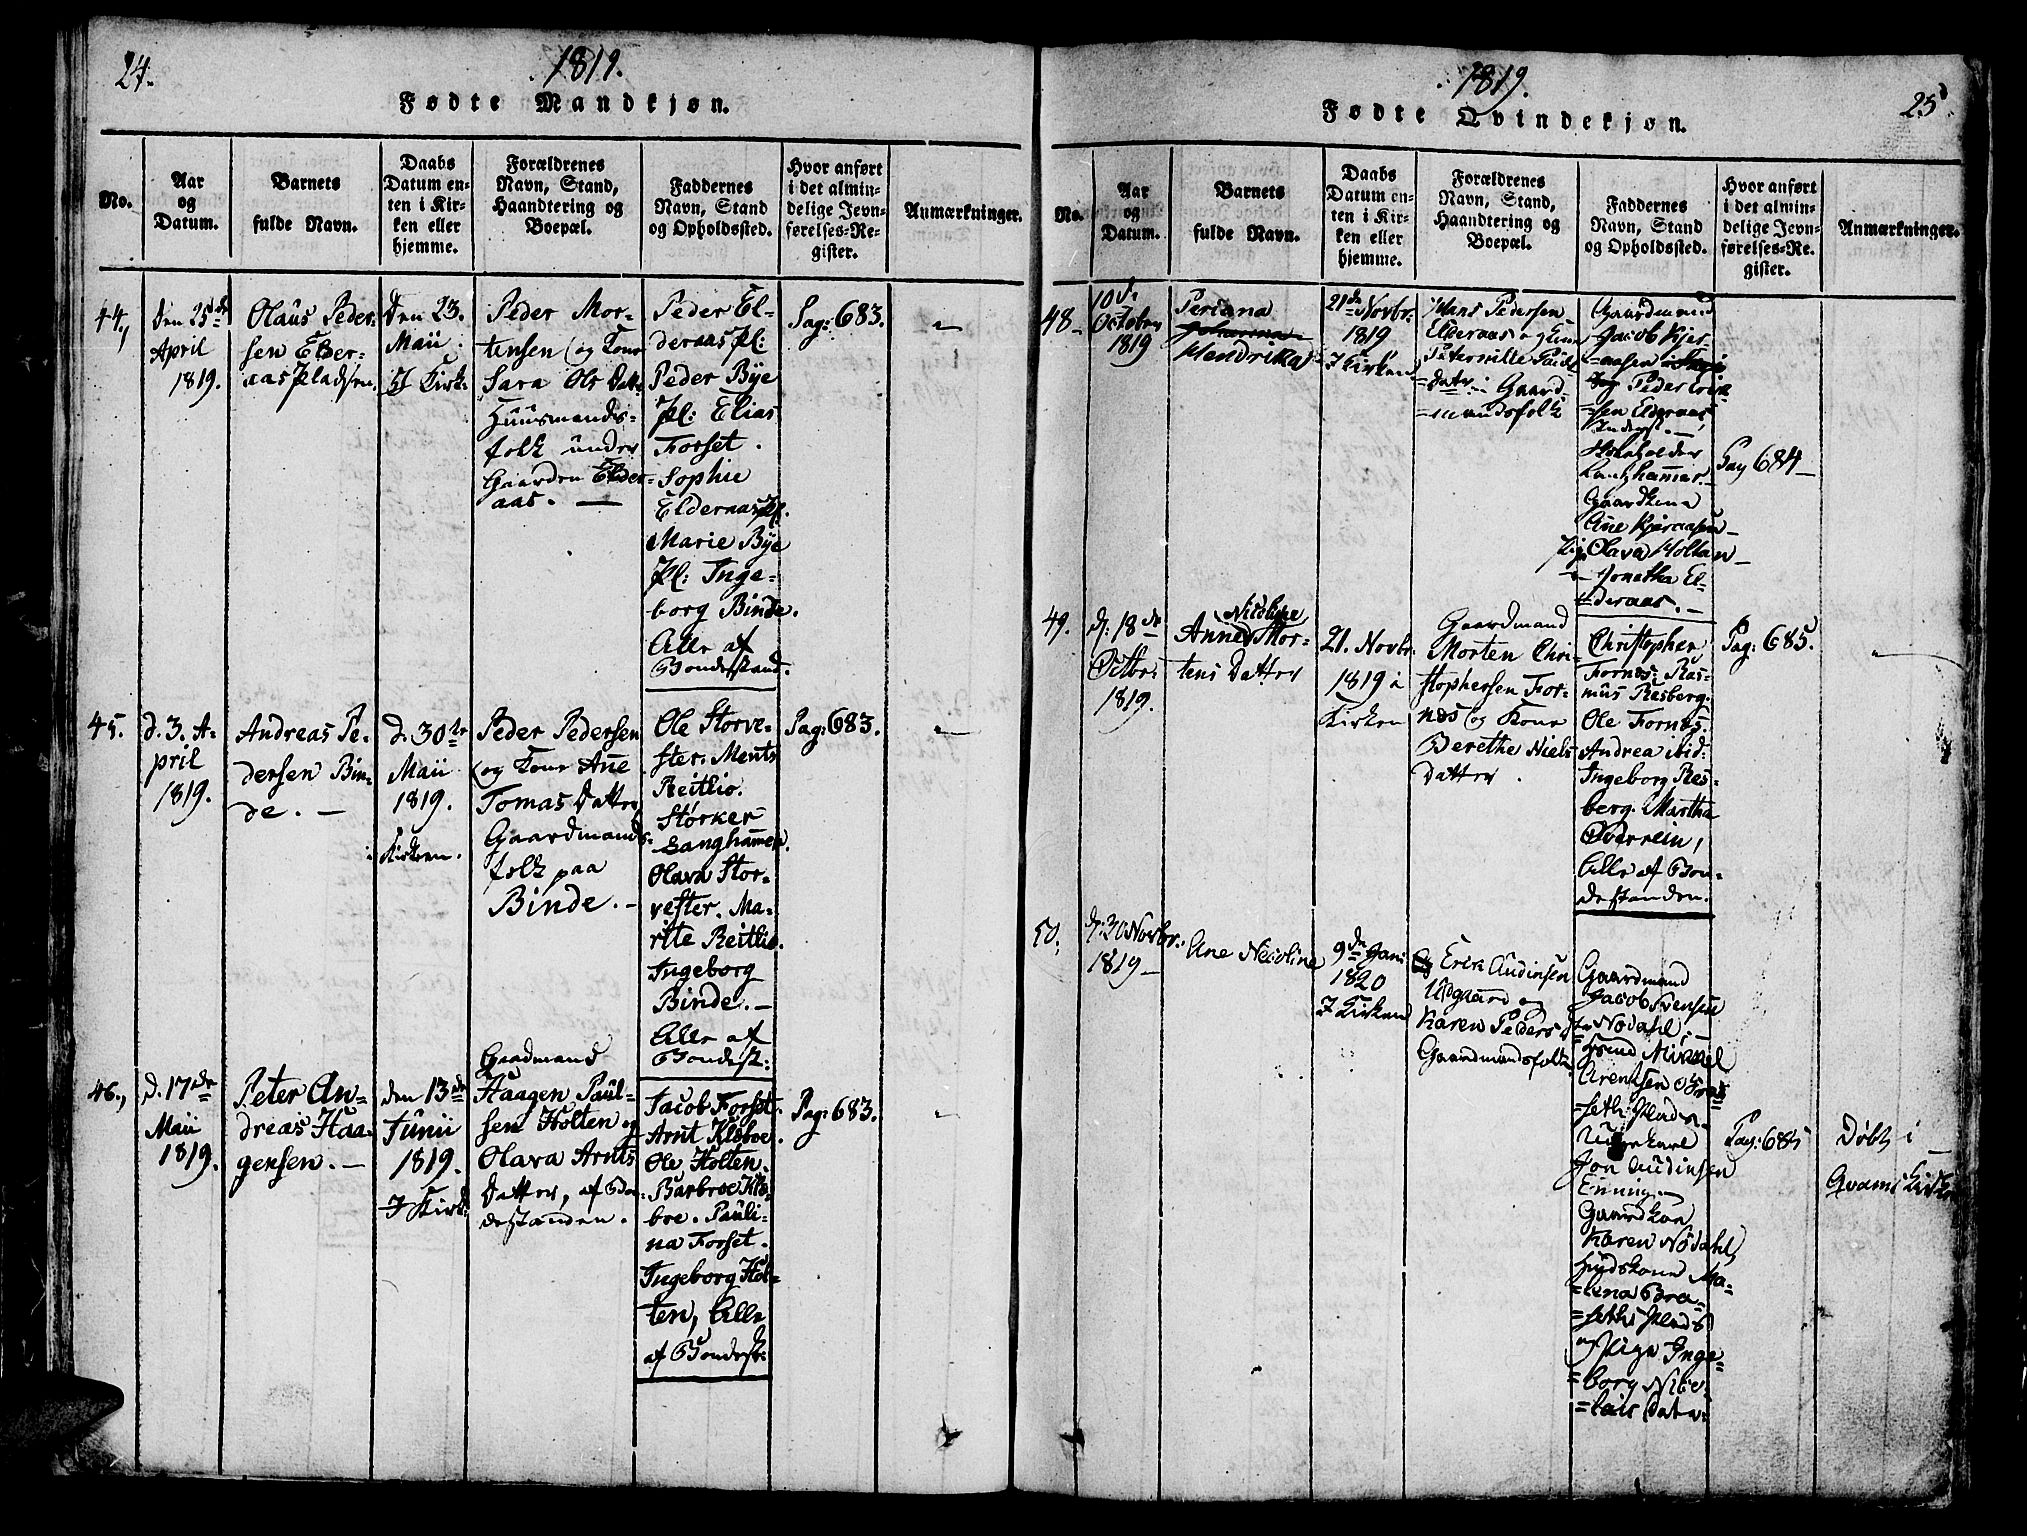 24.
1819.
Fødte Mandkjøn.
No.
Aar
og
Datum.
Barnets
fulde Navn.
Daabs
Datum en-
ten i Kir-
ken eller
hjemme.
Forældrenes
Navn, Stand,
Haandtering og
Boepæl.
Faddernes
Navn, Stand
og Opholdssted.
Hvor anført
i det almin-
delige Jevn-
førelses-Re-
gister.
Anmærkninger.
44.,
Den 25de
April
1819.
Olaus Peder-
sen Elder-
aas Pladsen.
Den 23.
Maii
I Kirk:
Peder Mor-
tensen og Kone
Sara Ols Datt:
Huusmands-
folk under
Gaarden Elder-
aas. —
Peder El-
deraas Pl:
Peder Bye
Pl: Elias
Forset.
Sophie
Elderaas Pl.
Marie Bye
Pl: Inge-
borg Binde.
Alle af
Bondestand.
Pag: 683.
—
45.
d. 3. A-
pril
1819.
Andreas Pe-
dersen Bin-
de. —
d. 30te
Maii
1819.
i Kirken.
Peder Pedersen
og Kone Ane
Tomas Datter
Gaardmands-
folk paa
Binde. —
Ole Storve-
fter. Ments
Reitlio.
Størker
Langhammer.
Olava Stor-
vefter. Ma-
rite Reitlio.
Ingeborg
Binde. —
Alle af
Bondest:
Pag: 683.
—
46.,
d. 17de
Maii
1819.
Peter An-
dreas Haa-
gensen. —
den 13de
Junii
1819.
I Kirk:
Gaadmand
Haagen Paul-
sen Holten og
Olava Arnts
Datter, af Bon-
destanden.
Jacob Forset.
Arnt Kleboe.
Ole Holten.
Barbroe Kle-
boe. Pauli-
na Forset.
Ingeborg Hol-
ten, Alle
af Bondest:
Pag: 683.
-
1819.
25
Fødte Qvindekjøn.
No.
Aar
og
Datum.
Barnets
fulde Navn.
Daabs
Datum en-
ten i Kir-
ken eller
hjemme.
Forældrenes
Navn, Stand,
Haandtering og
Boepæl.
Faddernes
Navn, Stand
og Opholdssted.
Hvor anført
i det almin-
delige Jevn-
førelses-Re-
gister.
Anmærkninger.
48-
10de
October
1819
Periana
Johanna
Hendrika
21de Novbr.
1819
I Kirken
Hans Pedersen
Elderaas og
Paul
=datr: Gaard-
=mandsfolk
Gaardmænd
Jacob Kjer-
=aasen
Peder Erik
=sen Elderaas
Inderst. —
Langhammer
Gaardkone
Ane Kjeraasen
Pig Olava Holtan
— Jonetha El-
=deraas. —
Pag 684—
49.
d: 18de
Octbr:
1819.
Nicoline
Anne Mor-
tens Datter
21. Novbr.
1819 i
Kirken
Gaardmand
Morten Chri-
stophersen For-
nes og Kone
Berethe Niels
Datter.
Christopher
Fornes. Ras-
mus Resberg.
Ole Fornes.
Andrea ibid.
Ingeborg Res-
berg. Martha
Overrein,
Alle af Bon-
destanden.
Pag: 685.
—
50.
d: 30 Novbr:
1819—
Ane Nicoline
9de Janr
1820
I Kirken
Erik Audinsen
Opgaard og
Karen Peders d
Gaardmandsfolk
Gaardmand
Jacob Svensen
Nødahl; —
Arentsen
=seth: Plads.
Ungkarl
Jon Audinsen
Einning—
Gaardkone
Karen Nødahl,
Huuskone Ma-
=lena Bra-
=seths Plads
og Pige Inge-
=borg Nico-
=lais Datr:
Pag: 685
Døbt i
Qvams Kirke